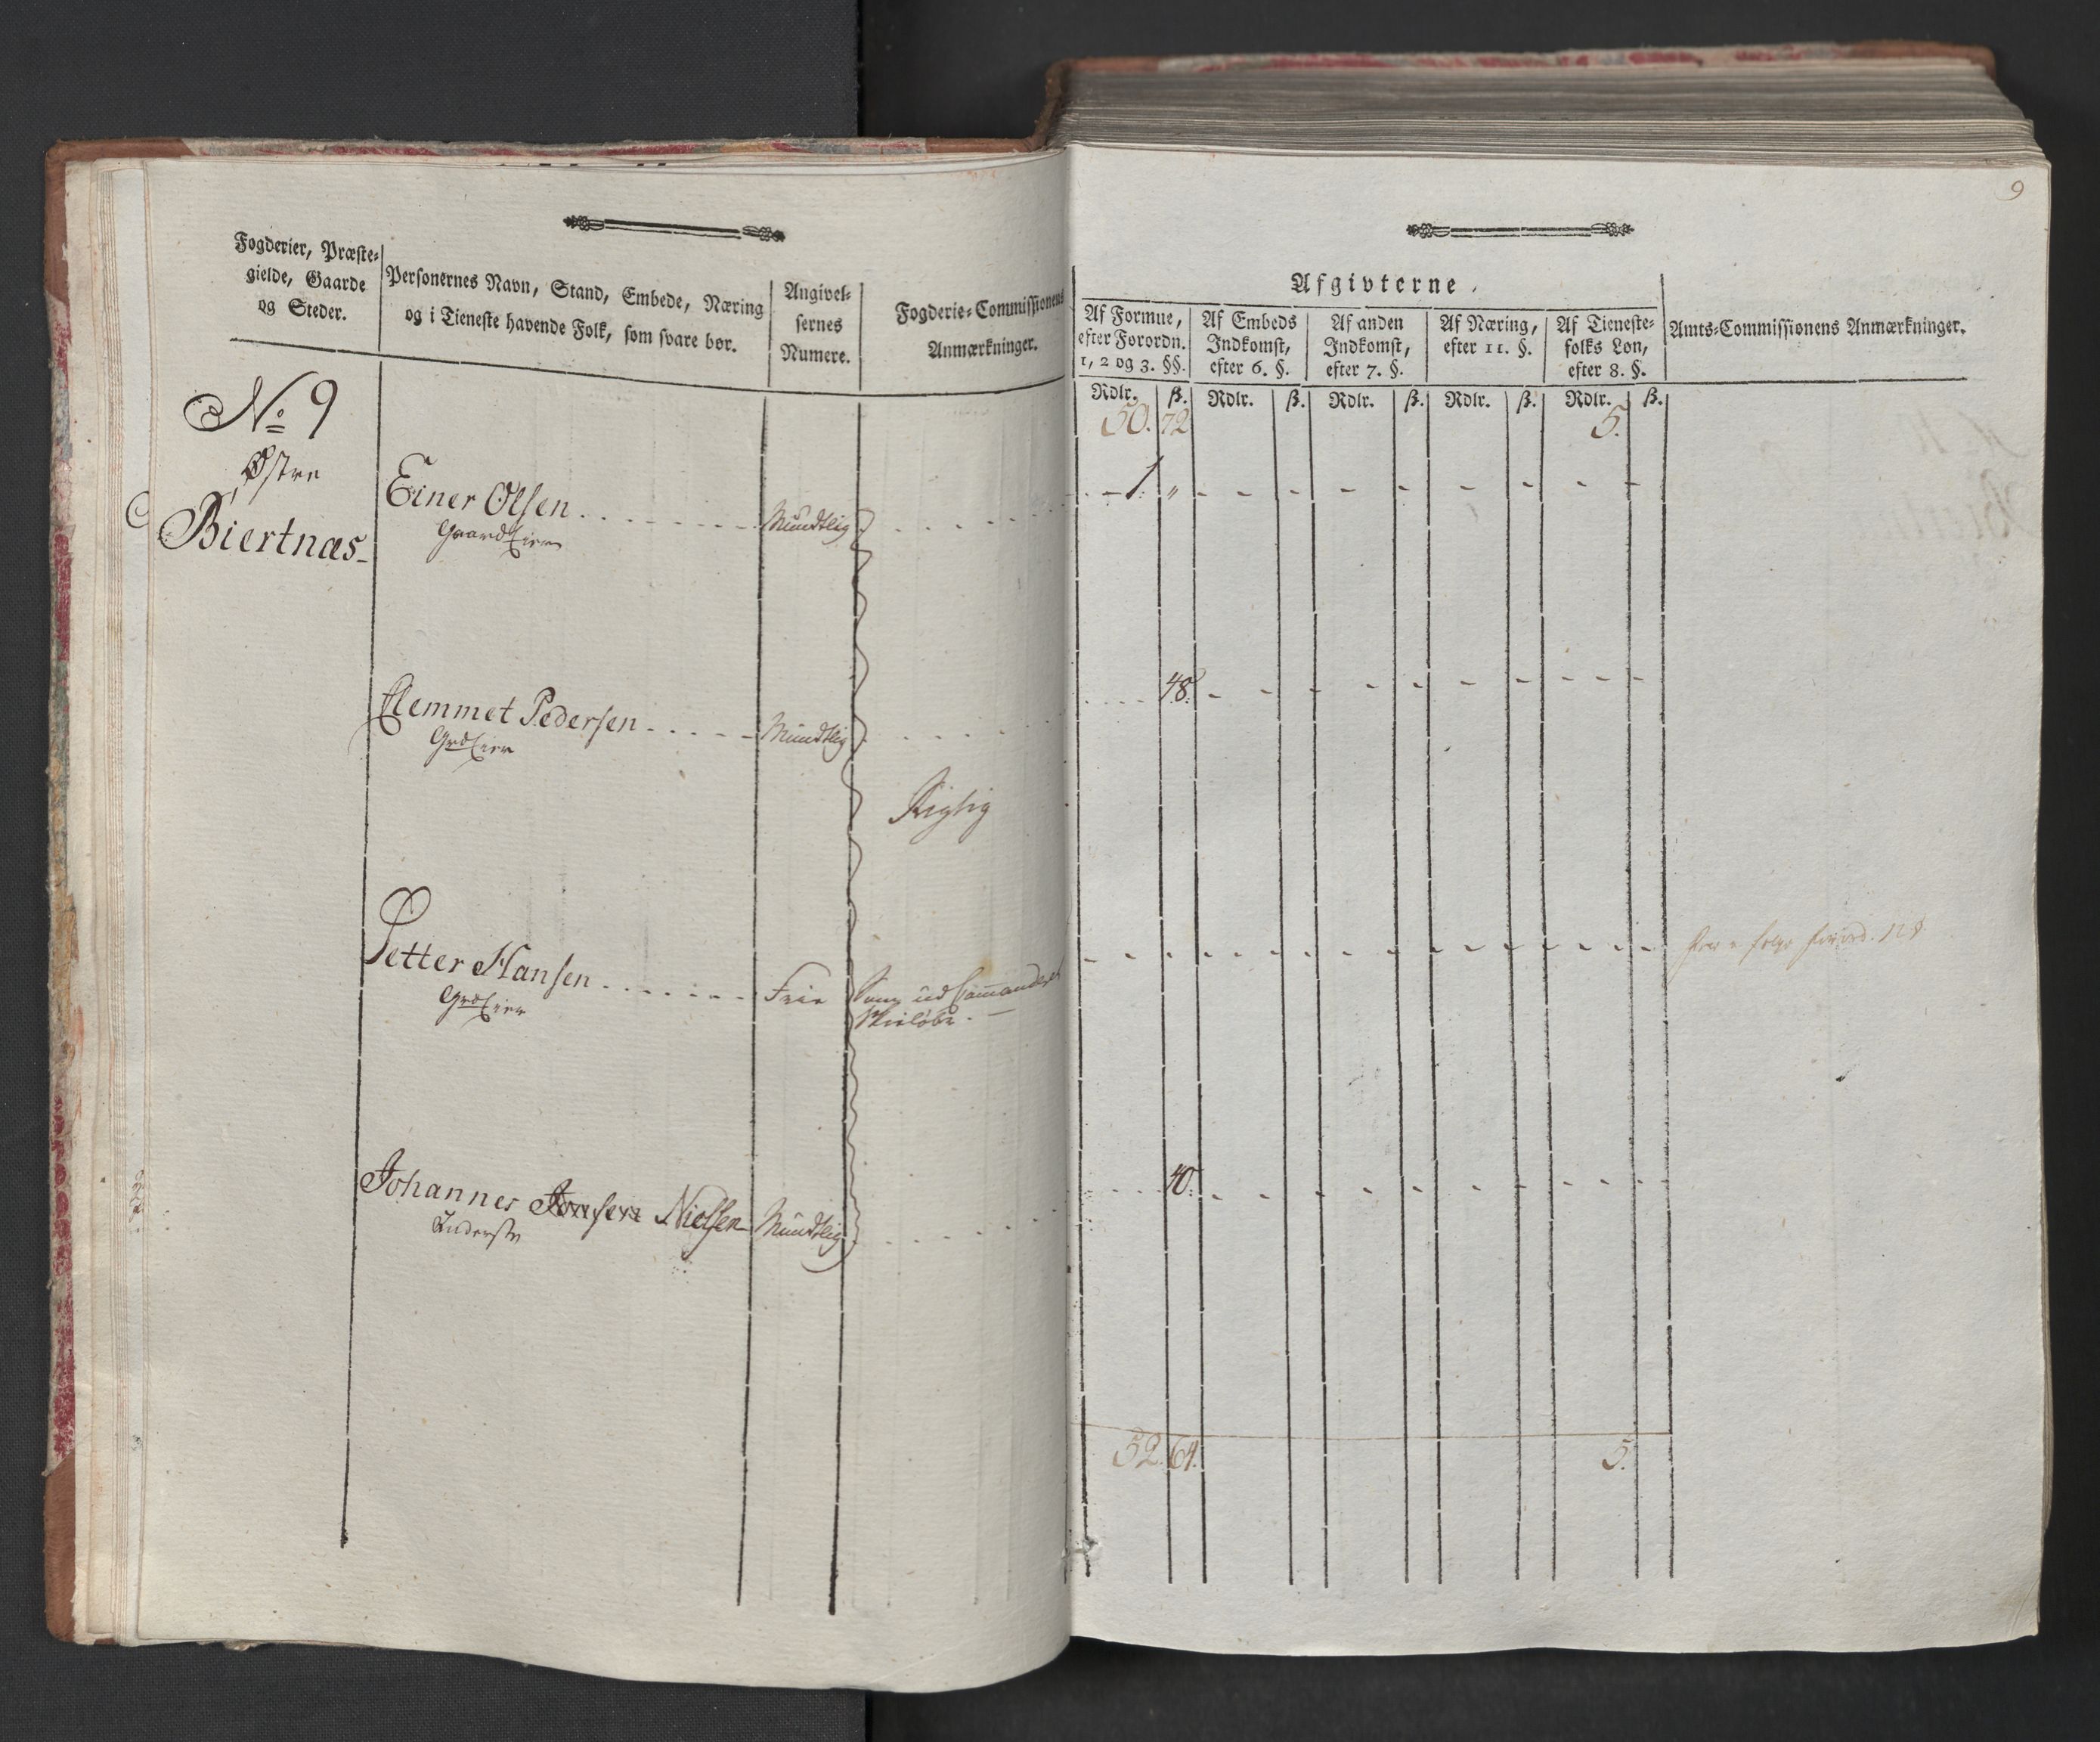 9
Fogderier, Præste-
gielde, Gaarde
og Steder.
Personernes Navn, Stand, Embede, Næring
og i Tieneste havende Folk, som svare bør.
Angivel-
sernes
Numere.
Fogderie-Commissionens
Anmærkninger.
Afgivterne.
Af Formue,
efter Forordn.
1, 2 og 3. §§.
Af Embeds
Indkomst,
efter 6. §.
Af anden
Indkomst,
efter 7. §.
Af Næring,
efter 11. §.
Af Tieneste-
folks Løn,
efter 8. §.
Amts-Commissionens Anmærkninger.
Rdlr. ß. Rdlr. ß. Rdlr. ß. Rdlr. ß. Rdlr. ß.
50. 72 5.
No 9
Østre
Biertnæs
Einer Olsen Mundtlig 1. "
GaardEier
Clemmet Pedersen Mundtlig 48.
GrdEier
Rigtig
Petter Hansen Frie Som ud Commanderet
GrdEier Skieløbr.
Johannes Jonsen Nielsen Mundtlig 40.
Inderste
52. 64. 5.